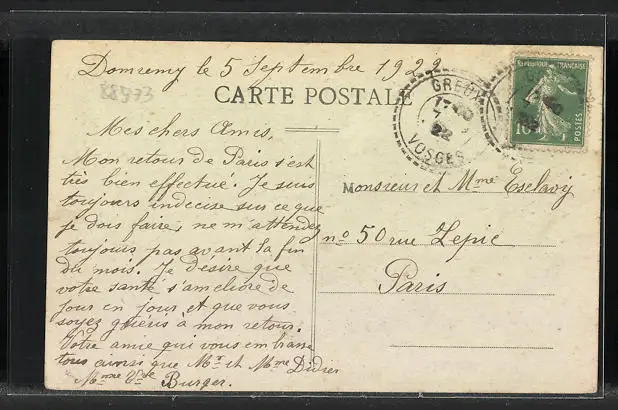 Domremy le 5 Septembre 1922
CARTE POSTALE
GREUX
VOSGES
REPUBLIQUE FRANÇAISE
POSTES
10
Mes chers Amis,
Mon retour de Paris s'est
très bien effectué. Je suis
toujours indécise sur ce que
je dois faire, ne m'attendez
toujours pas avant la fin
du mois. Je désire que
votre santé s'améliore de
jour en jour et que vous
soyez guéris à mon retour.
Votre amie qui vous embrasse
tous ainsi que Mr et Mme Didier
Mme Vve Burger.
Monsieur et Mme Esclavy
no 50 rue Lepic
Paris